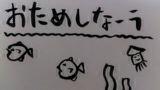 おためしなーう